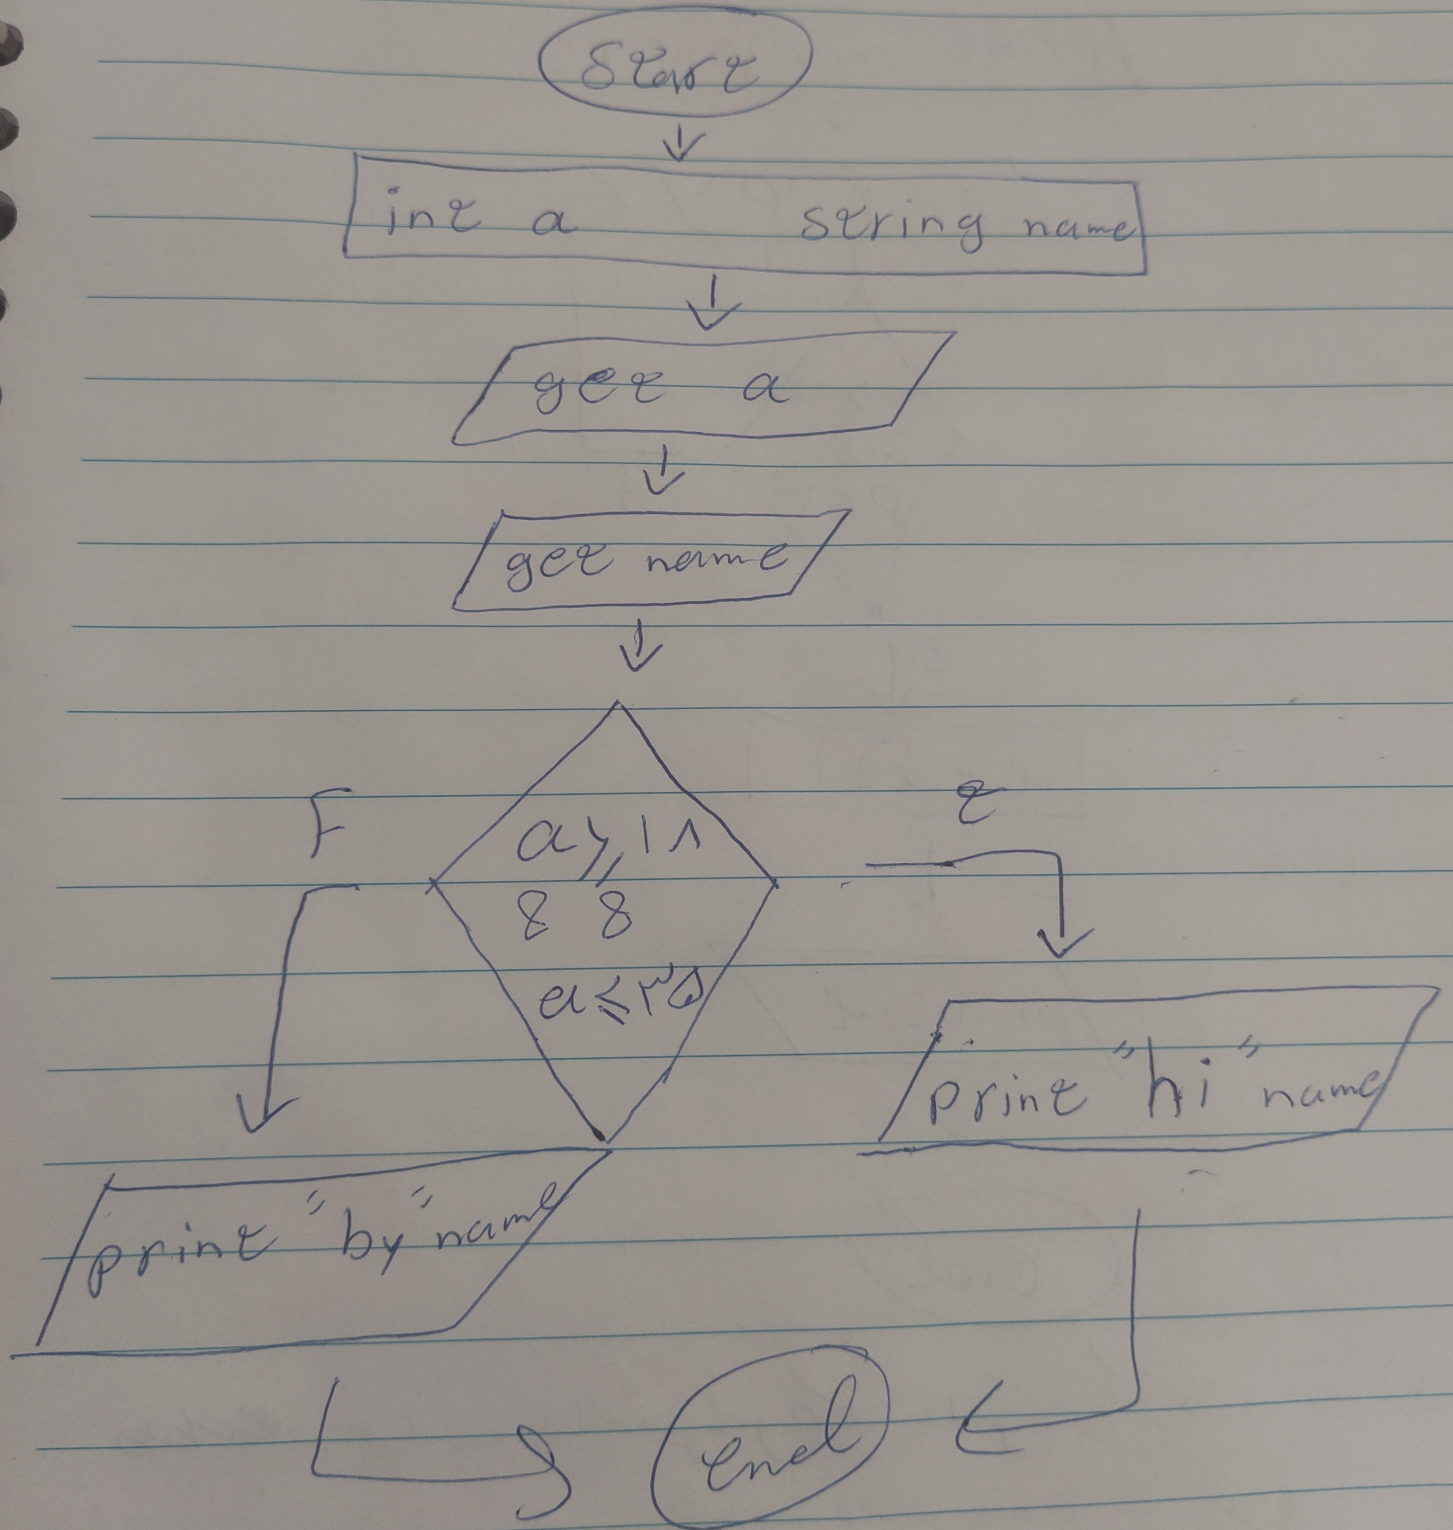 start
int a string name
get a
get name
F
t
a ≥ ۱۸
&&
a ≤ ۳۵
print "hi" name
print "by" name
end